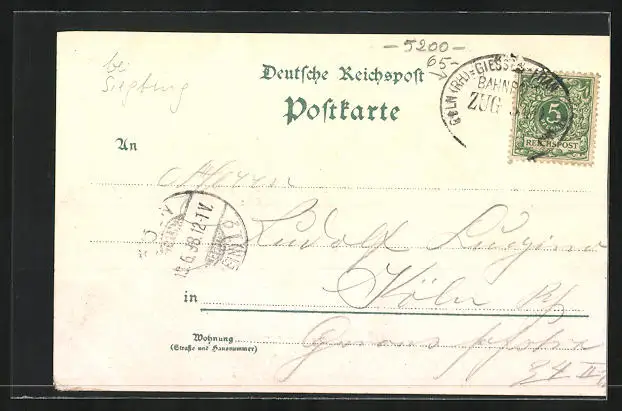 - 5200 -
65 -
bei
Siegburg
Deutsche Reichspost
Postkarte
CÖLN (RH)-GIESSEN
BAHNPOST
ZUG
5
REICHSPOST
An
Herrn
19.6.98.12-1 V.
Rudolf
in Köln
Wohnung
(Straße und Hausnummer)
24 III